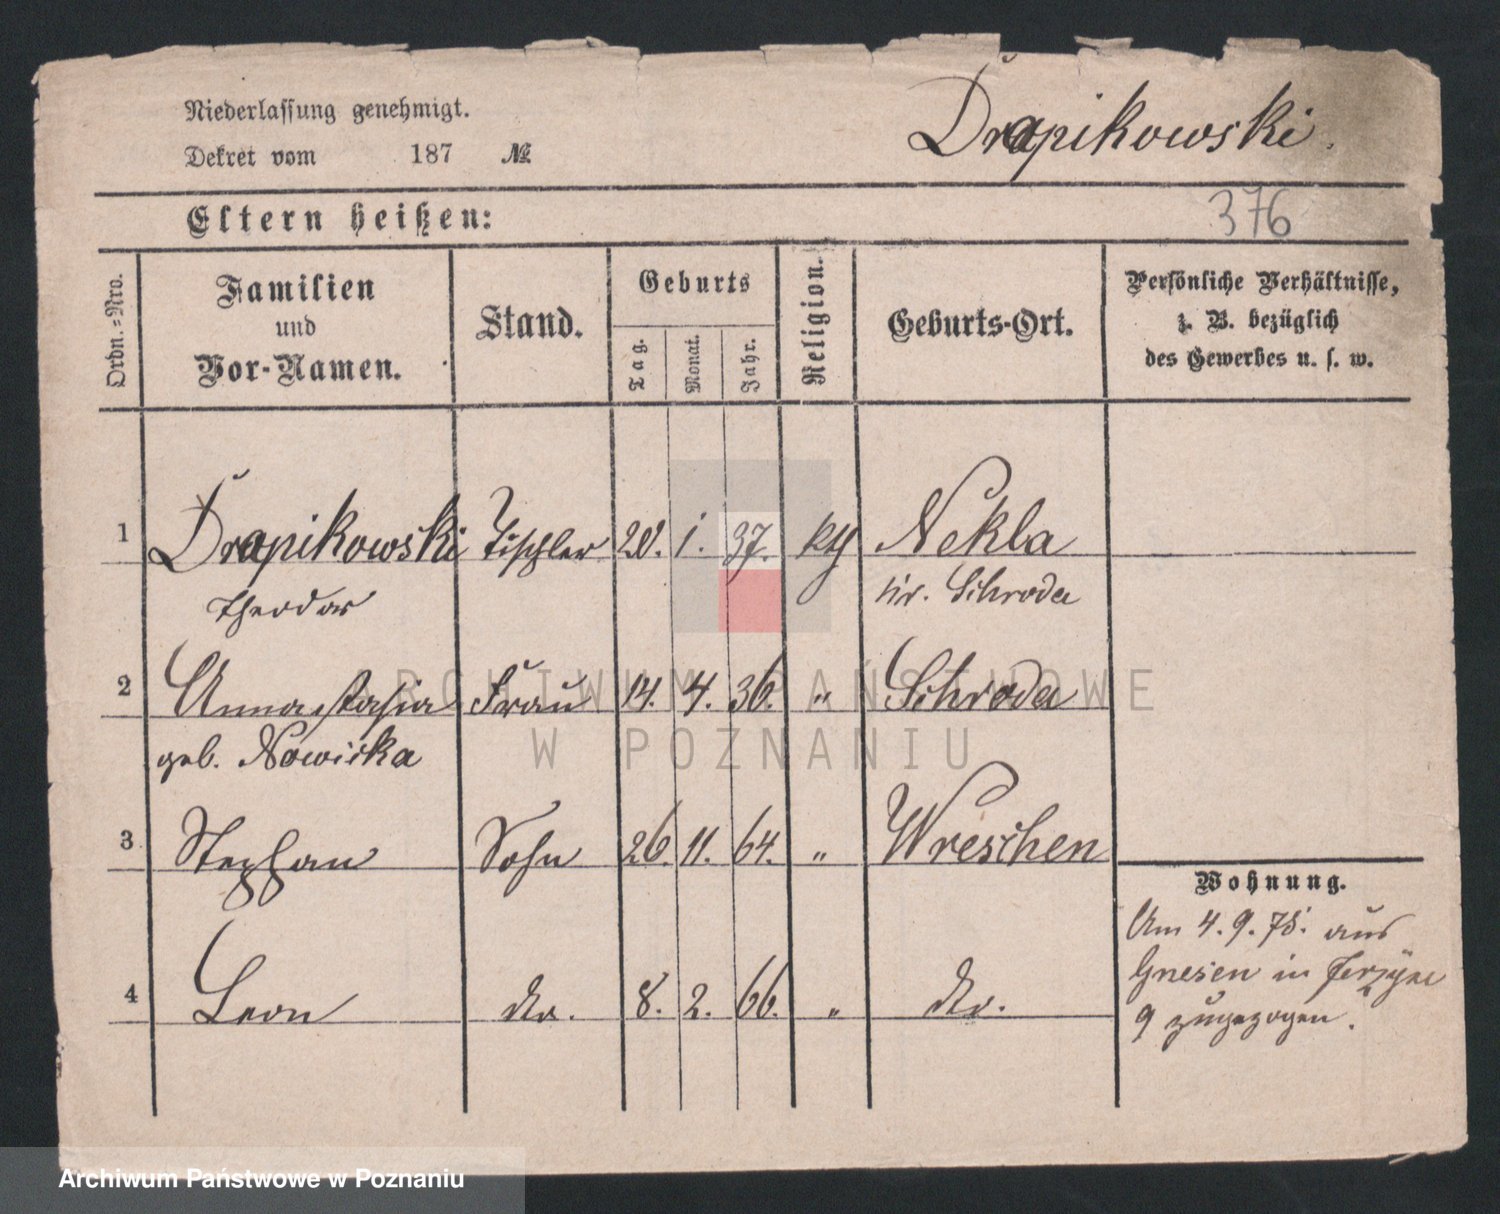 Niederlassung genehmigt.
Dekret vom 187 №
Drapikowski.
Eltern heißen:
376
Ordn.-Nro.
Familien
und
Vor-Namen.
Stand.
Geburts
Tag.
Monat.
Jahr.
Religion.
Geburts-Ort.
Persönliche Verhältnisse,
z. B. bezüglich
des Gewerbes u. s. w.
1 Drapikowski Tischler 20. 1. 37. kth Nekla
Theodor Kr. Schroda
2 Annastasia Frau 14. 4. 36. " Schroda
geb. Nowicka
3 Stephan Sohn 26. 11. 64. " Wreschen
4 Leon do. 8. 2. 66. " do.
Wohnung.
Am 4. 9. 78. aus
Gnesen in Jerzyce
9 zugezogen.
ARCHIWUM PAŃSTWOWE
W POZNANIU
Archiwum Państwowe w Poznaniu